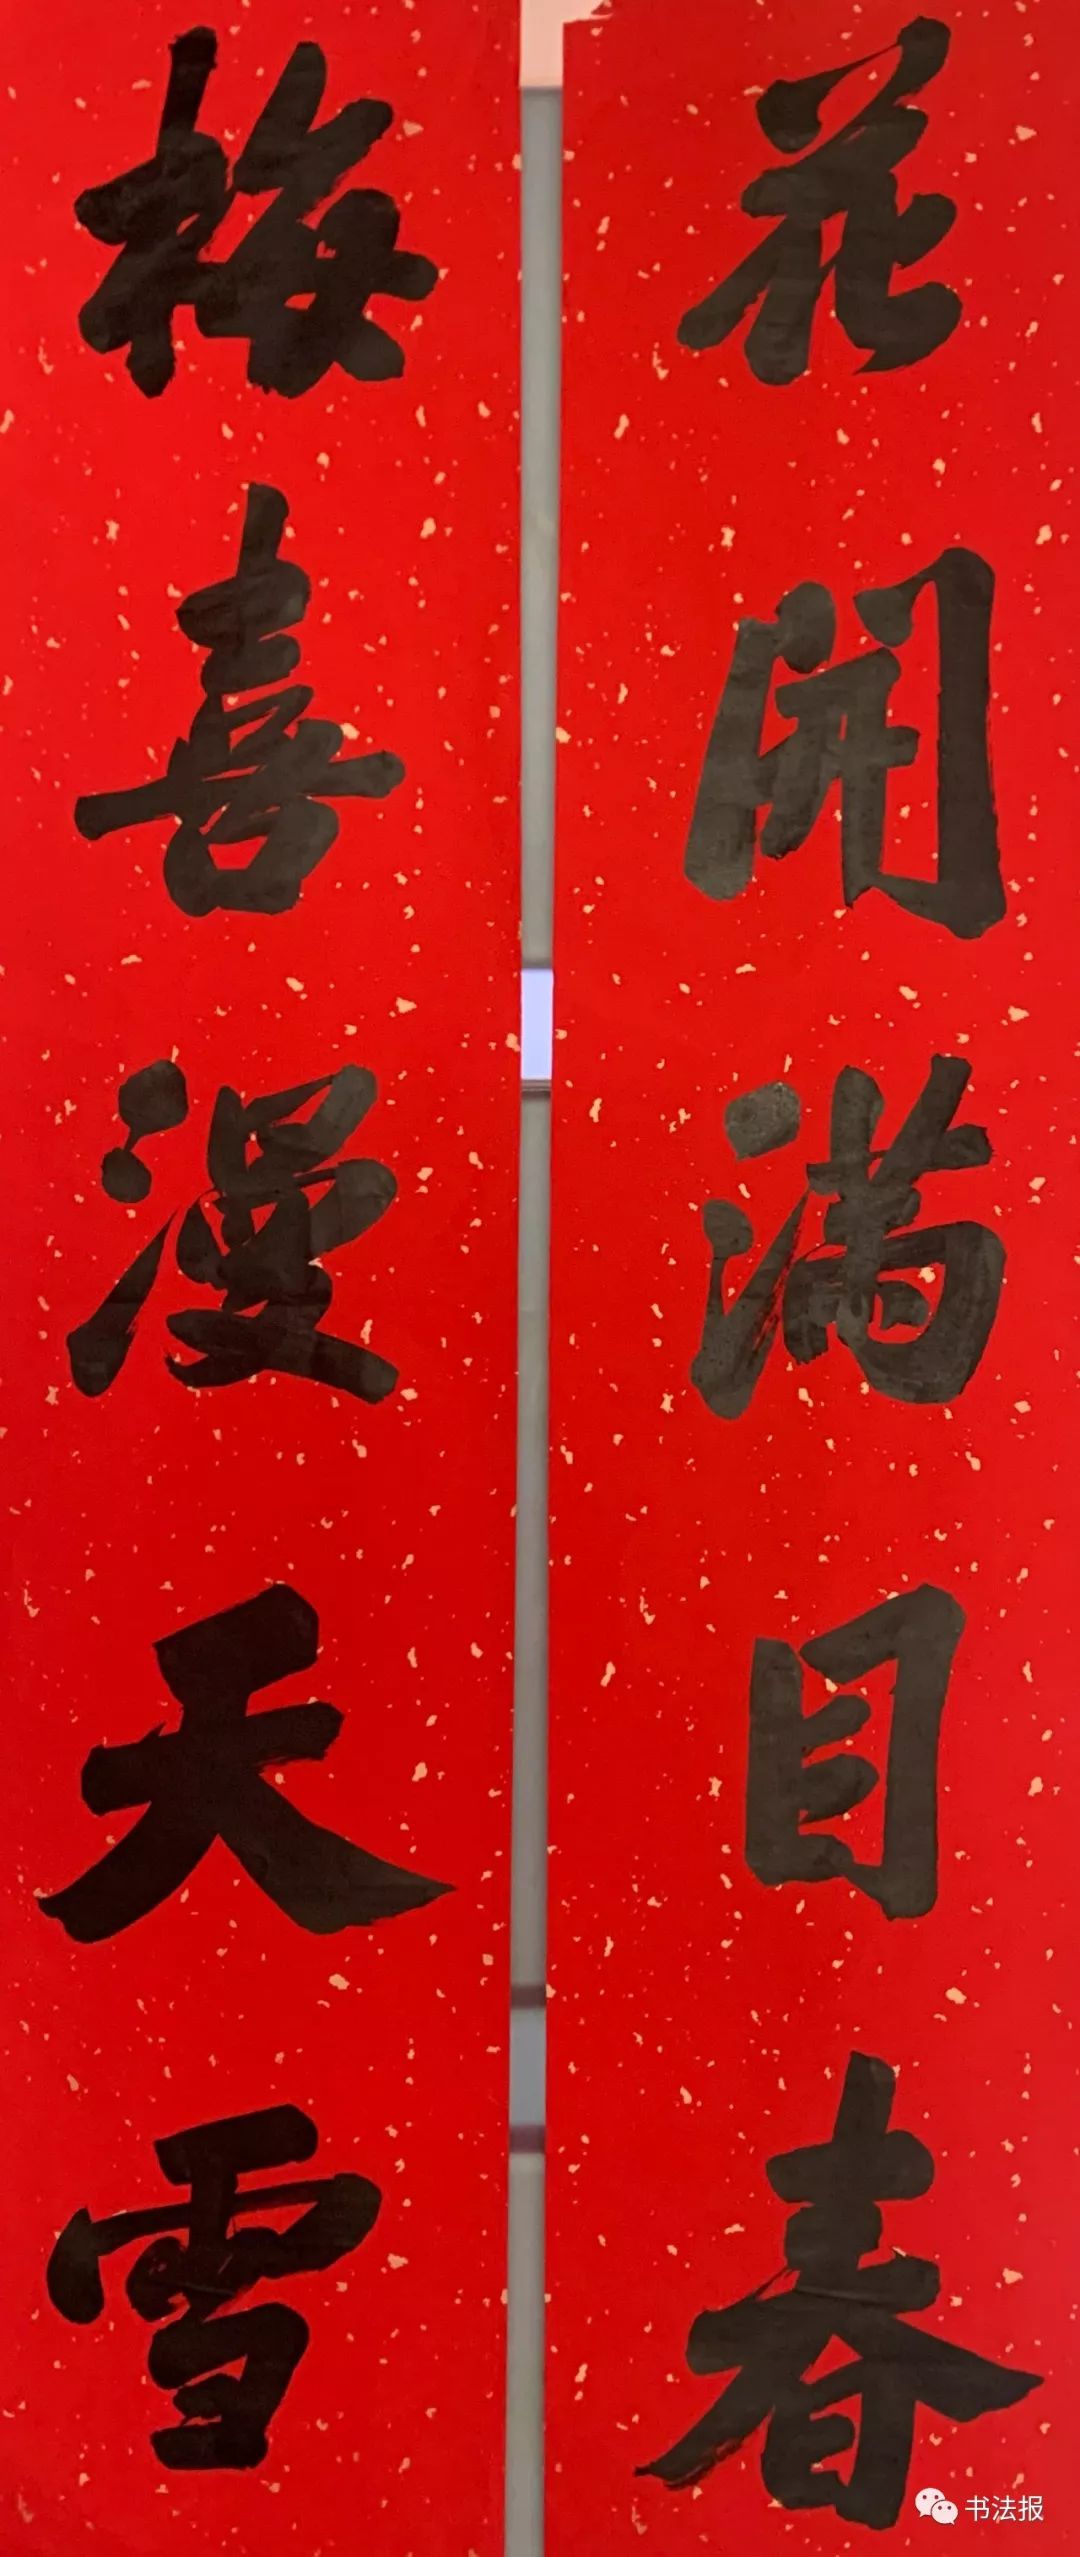 花開滿目春
梅喜漫天雪
书法报